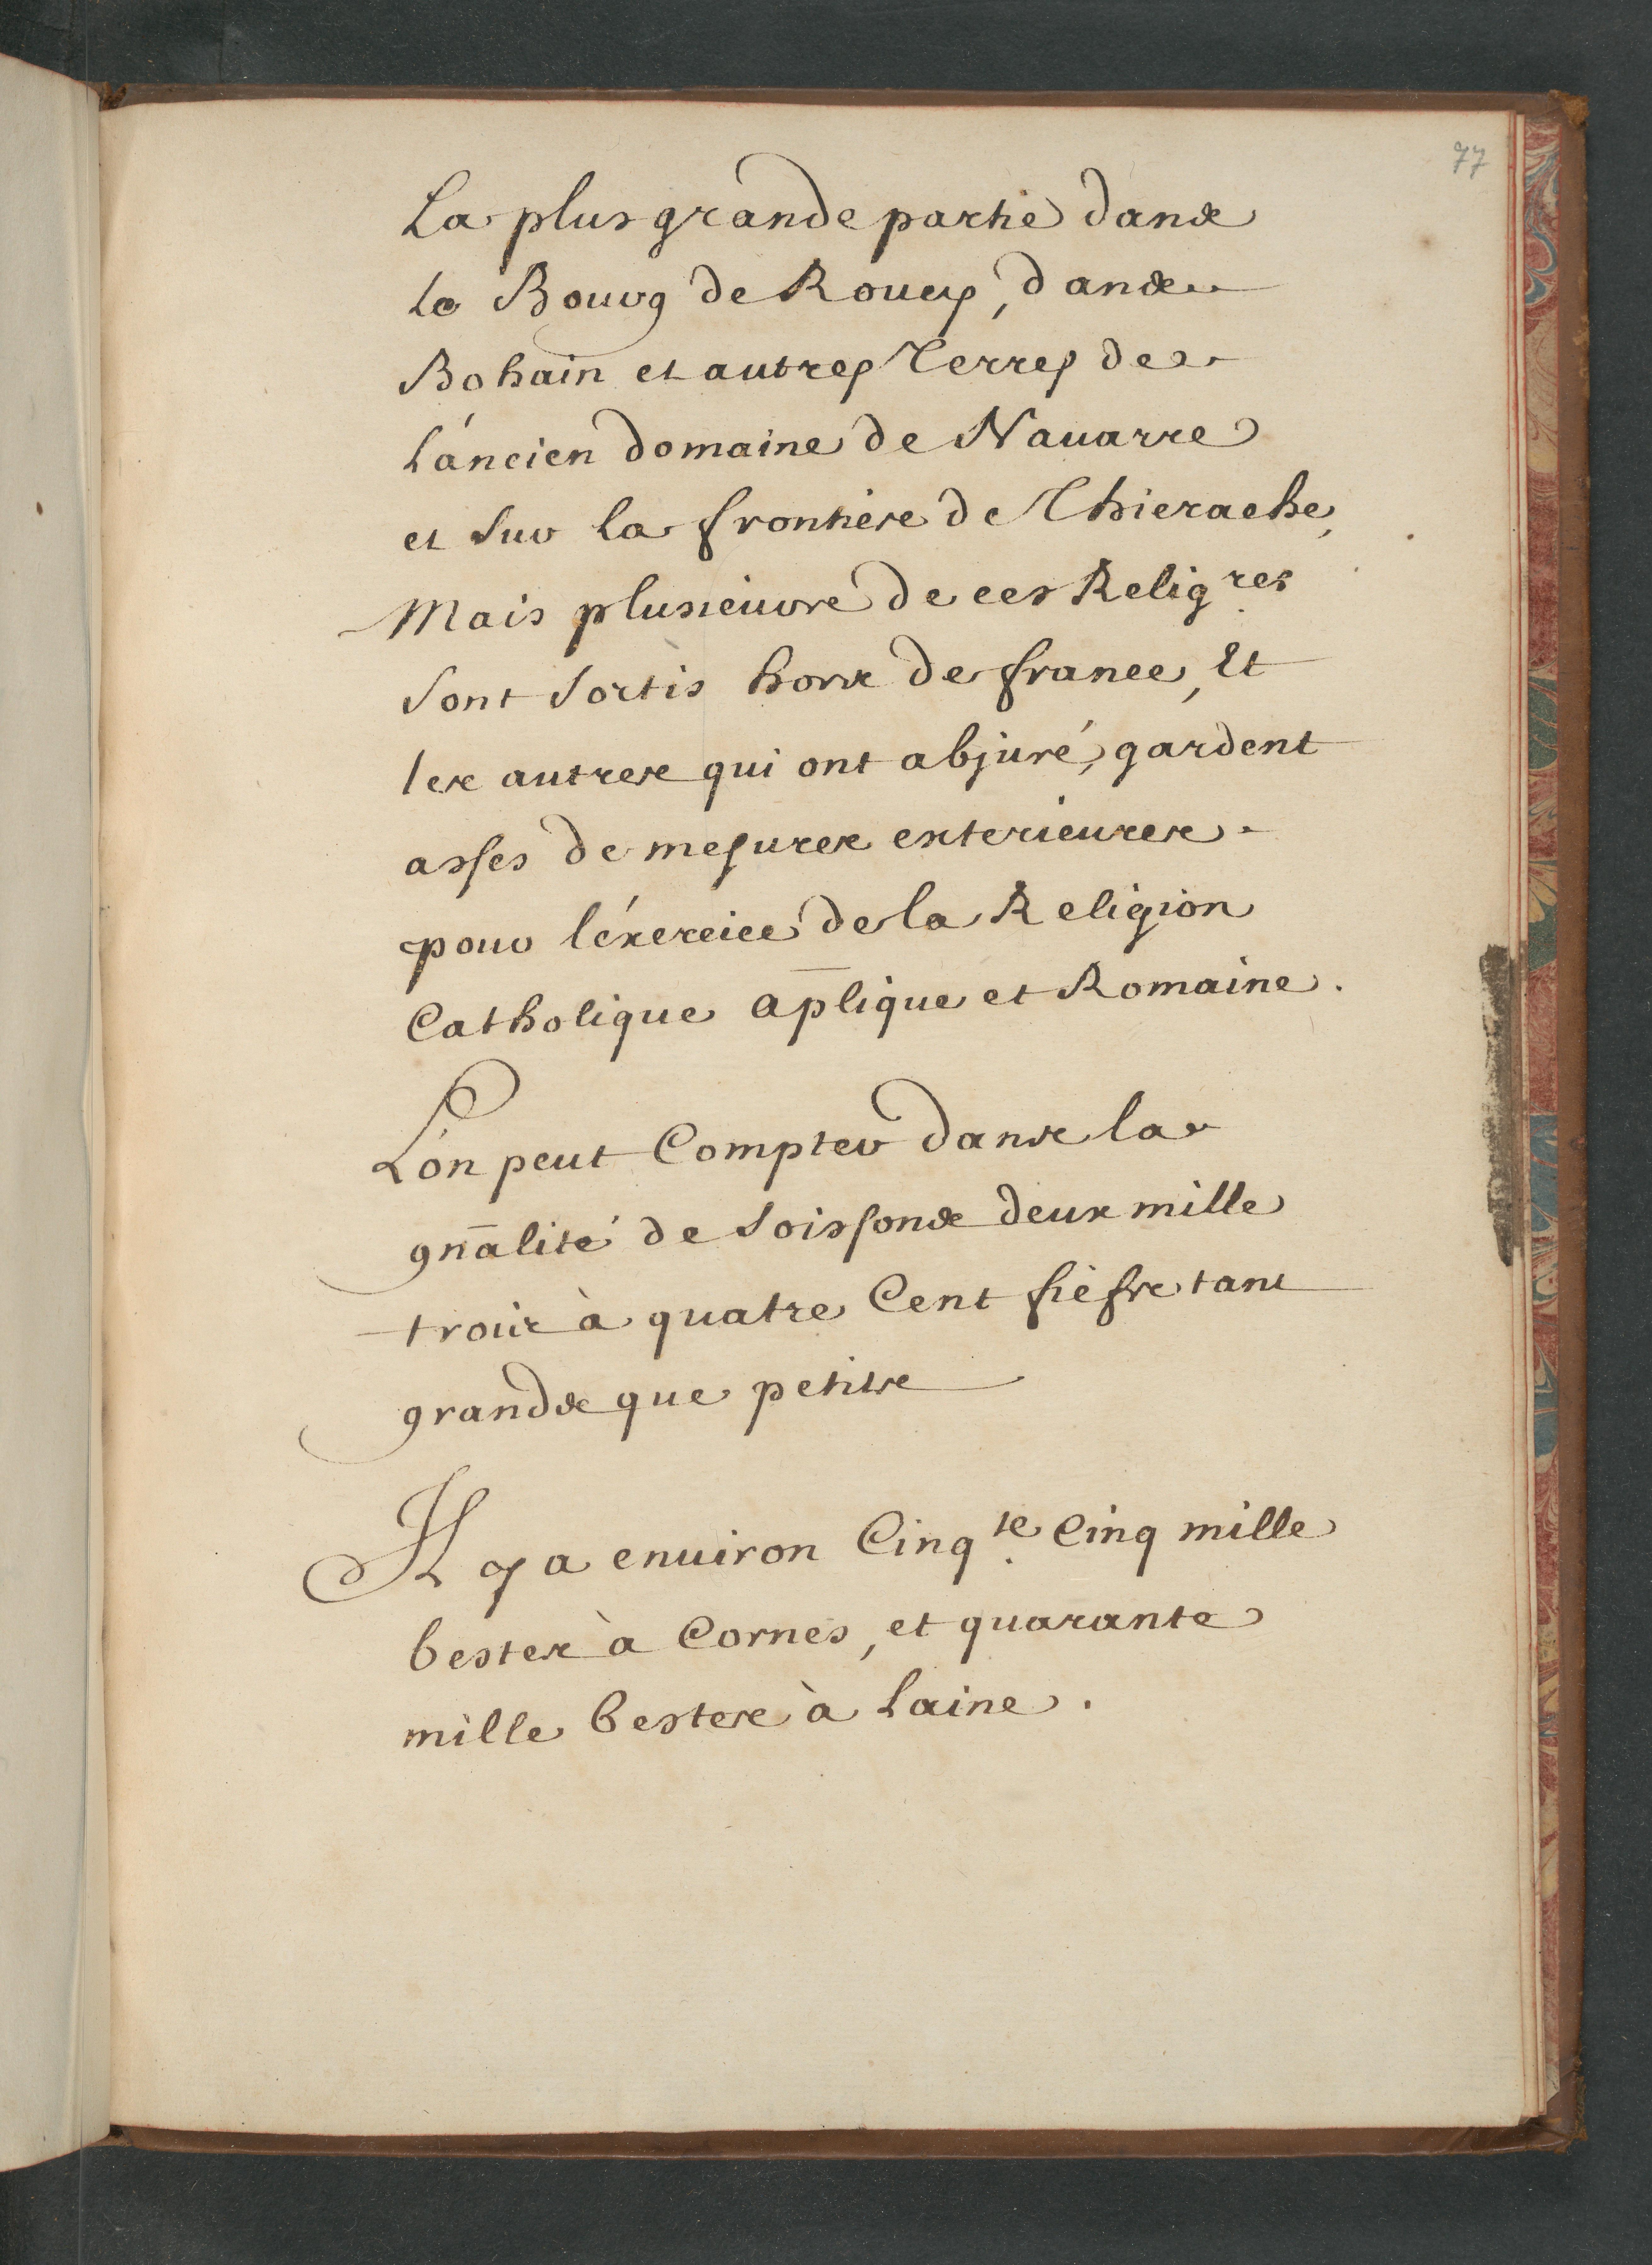 77
La plus grande partie dans
le Bourg de Roucy, dans
Bohain et autres Terres de
l'ancien domaine de Nauarre
et sur la frontiere de Thierache,
Mais plusieurs de ces Relig.res
sont sortis hors de france, Et
les autres qui ont abjuré, gardent
asses de mesures exterieures
pour l'éxercice de la Religion
Catholique ap̄lique et Romaine.
L'on peut Compter dans la
gn̄alité de Soissons deux mille
trois à quatre Cent fiefs tant
grands que petits
Il y a enuiron Cinq.te Cinq mille
bestes à Cornes, et quarante
mille bestes à Laine.